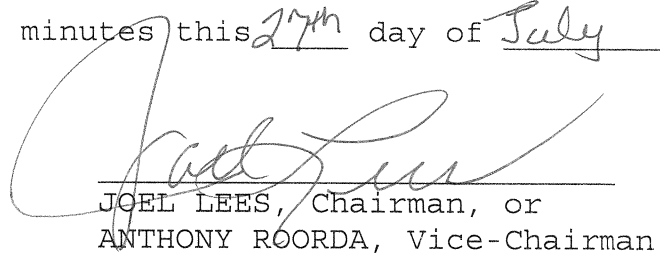 minutes this 27th day of July
Joel Lees
JOEL LEES, Chairman, or
ANTHONY ROORDA, Vice-Chairman